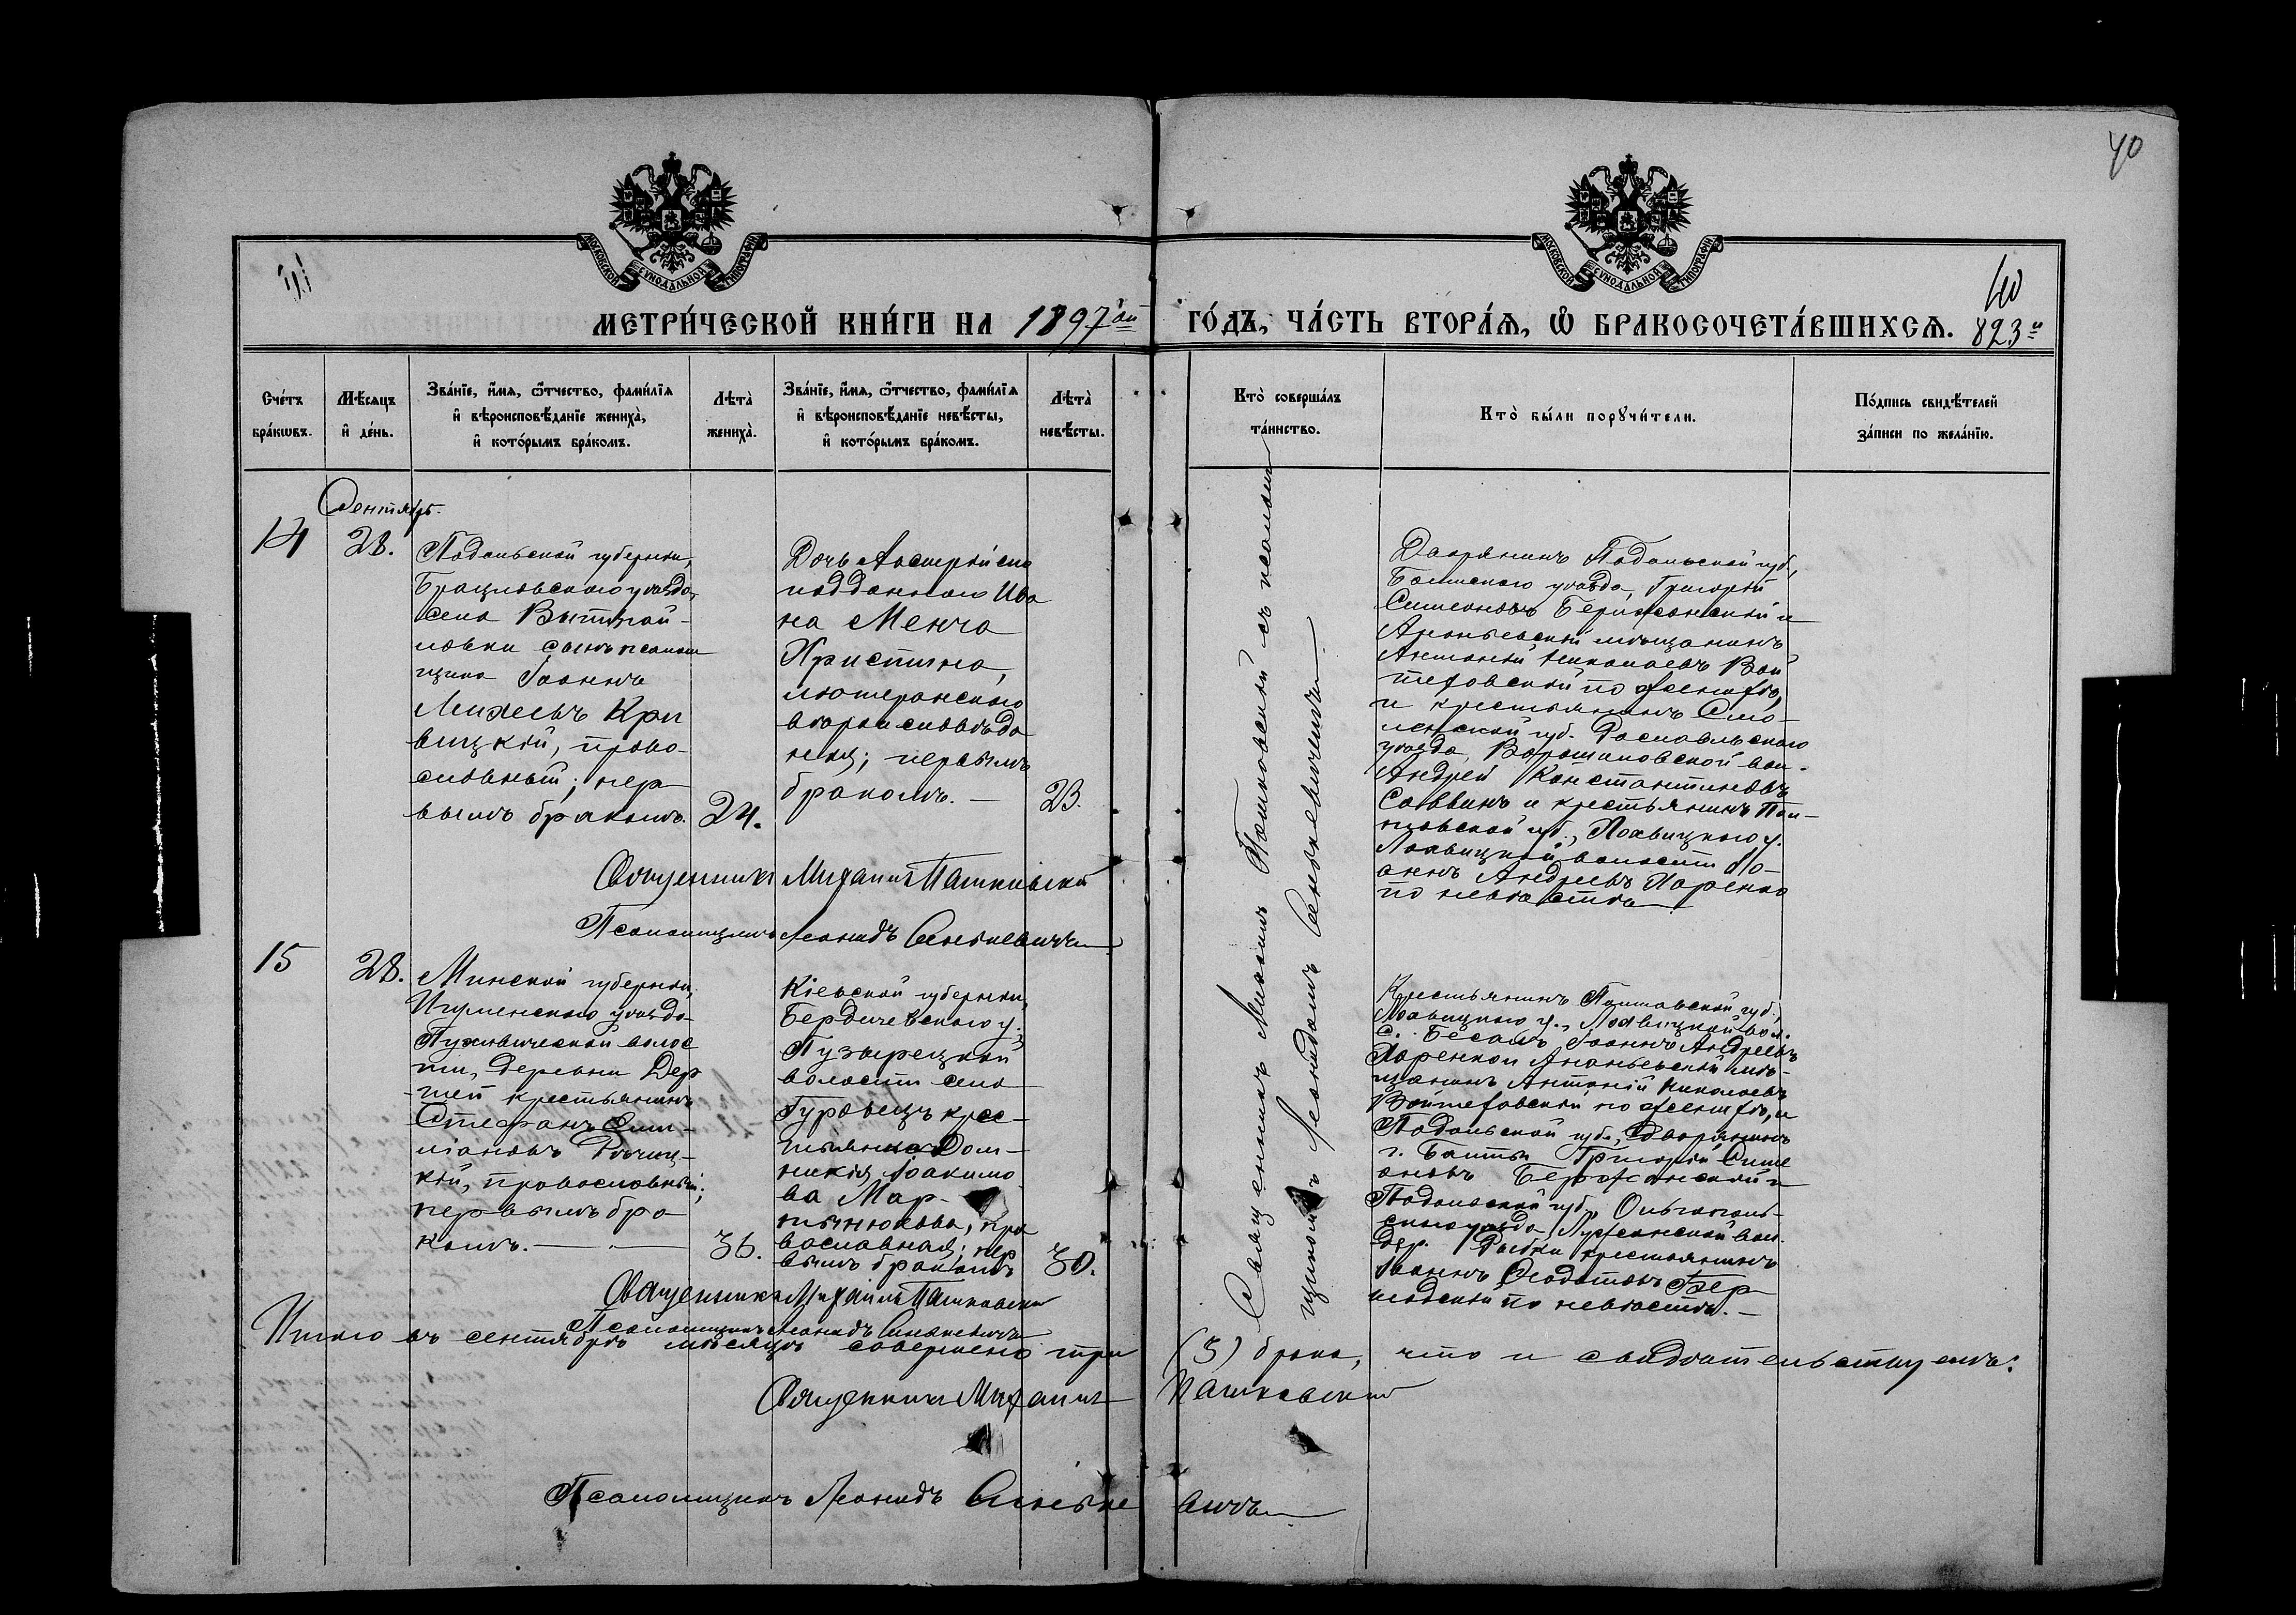 40
МОСКОВСКОЙ СѴНОДАЛЬНОЙ ТИПОГРАФІИ
МОСКОВСКОЙ СѴНОДАЛЬНОЙ ТИПОГРАФІИ
40
МЕТРИ́ЧЕСКОЙ КНИ́ГИ НА 1897ой ГО́ДЪ, ЧА́СТЬ ВТОРА́Я, Ѡ҆ БРАКОСОЧЕТА́ВШИХСѦ. 823
Сче́тъ бра́кѡвъ.
Мѣ́сяцъ и҆ де́нь.
Зва́нїе, и҆́мѧ, ѻ҆́тчество, фами́лїѧ
и҆ вѣроисповѣ́данїе жениха̀,
и҆ кото́рымъ бра́комъ.
Лѣта̀
жениха̀.
Зва́нїе, и҆́мѧ, ѻ҆́тчество, фами́лїѧ
и҆ вѣроисповѣ́данїе невѣ́сты,
и҆ кото́рымъ бра́комъ.
Лѣта̀
невѣ́сты.
Кто̀ соверша́лъ
та́инство.
Кто̀ бы́ли порꙋчи́тели.
По́дпись свидѣ́телей
за́писи по жела́нїю.
Сентябрь.
14
28.
Подольской губерніи,
Брацлавскаго уѣзда,
села
ловки сынъ псалом
щика Іоаннъ
Михеевъ Кри
вицкій, право-
славный; пер
вымъ бракомъ.
24.
Дочь Австрійска
подданнаго Ива
на Менча
Христина,
лютеранскаго
вѣроисповѣда
нія; первымъ
бракомъ. —
23.
Священникъ Михаилъ Пашковскій
Псаломщикъ Леонидъ Сенькевичъ
Священникъ Михаилъ Пашковскій съ псалом
щикомъ Леонидомъ Сенькевичемъ
Дворянинъ Подольской губ.,
Балтскаго уѣзда, Григорій
Симеоновъ Бержанскій и
Ананьевскій мѣщанинъ
Антоній Николаевъ Вой
теховскій по женихѣ,
и крестьянинъ Смо-
ленской губ. Рославльскаго
уѣзда, Ворошиловской вол.
Андрей Константиновъ
Саввинъ и крестьянинъ Пол-
тавской губ., Лохвицкаго у.
Лохвицкой волости Іо-
аннъ Андреевъ Харенко
по невѣстѣ
15
28.
Минской губерніи,
Игуменскаго уѣзда
Пуховической волос
ти, деревни Дер
тей крестьянинъ
Стефанъ Еми-
ліановъ
кій, православный;
первымъ бра
комъ. —
36.
Кіевской губерніи,
Бердичевскаго у.,
Пузырецкой
волости села
Гуровецъ крес-
тьянка Дом-
никія Іоакимо
ва Мар-
тынюкова, пра
вославная; пер
вымъ бракомъ
30.
Крестьянинъ Полтавской губ.,
Лохвицкаго у., Лохвицкой вол.
с. Іоаннъ Андреевъ
Харенко и Ананьевскій мѣ-
щанинъ Антоній Николаевъ
Войтеховскій по женихѣ, и
Подольской губ., дворянинъ
г. Балты Григорій Симе
оновъ Бержанскій и
Подольской губ., Ольгополь-
скаго уѣзда, вол.
дер. крестьянинъ
Іоаннъ Ѳеодотовъ Бер
шадскій по невѣстѣ. —
Священникъ Михаилъ Пашковскій
Псаломщикъ Леонидъ Сенькевичъ
Итого въ сентябрѣ мѣсяцѣ совершено три (3) брака, что и свидѣтельствуемъ:
Священникъ Михаилъ Пашковскій
Псаломщикъ Леонидъ Сенькевичъ